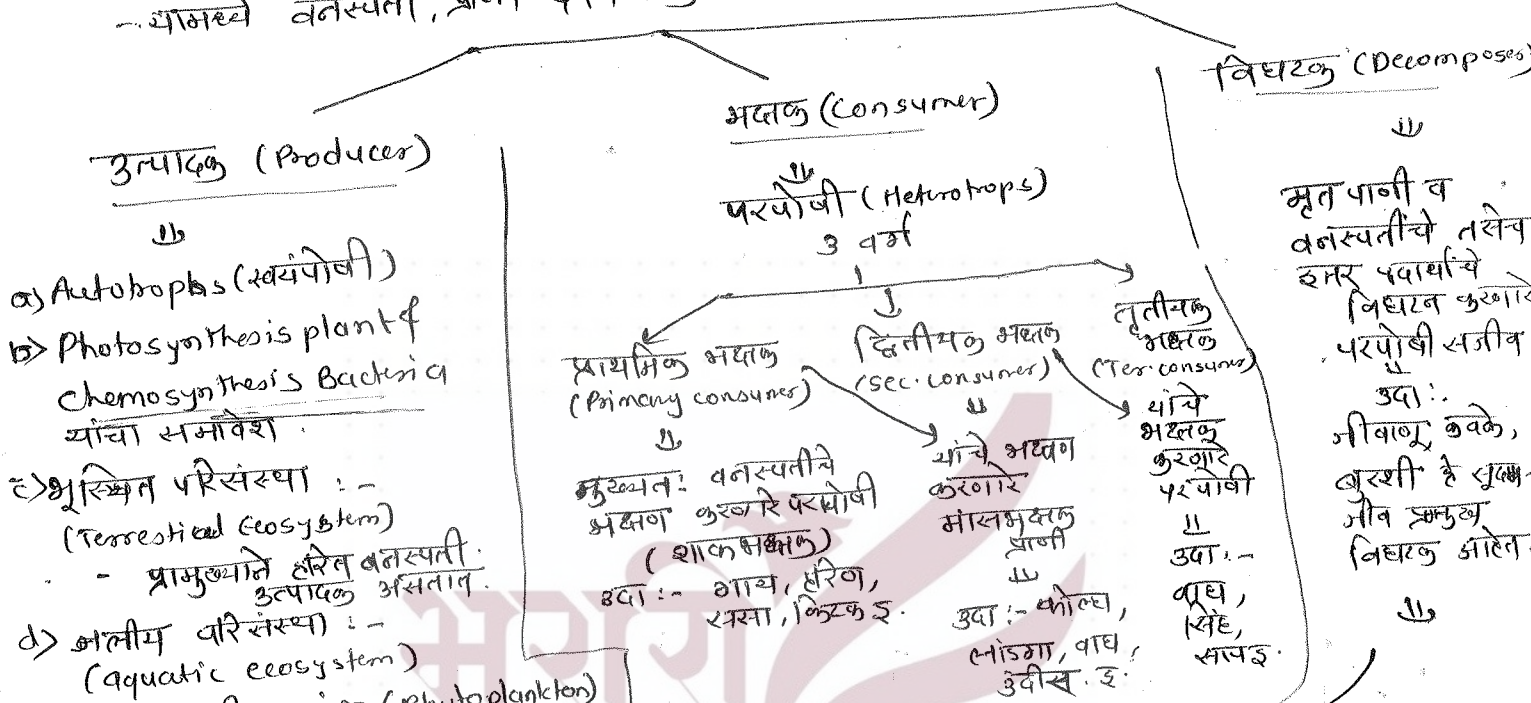 - यामध्ये वनस्पती,
उत्पादक (Producer)
⇓
a) Autotrophs (स्वयंपोषी)
b) Photosynthesis plant &
chemosynthesis Bacteria
यांचा समावेश.
c) भूस्थित परिसंस्था :-
(Terrestial Ecosystem)
- प्रामुख्याने हरित वनस्पती
उत्पादक असतात.
d) जलीय परिसंस्था :-
(aquatic ecosystem)
(Phytoplankton)
भक्षक (Consumer)
⇓
परपोषी (Heterotrops)
3 वर्ग
प्राथमिक भक्षक
(Primary consumer)
⇓
मुख्यतः वनस्पतीचे
भक्षण करणारे परपोषी
(शाकभक्षक)
उदा :- गाय, हरिण,
ससा, किटक इ.
द्वितीयक भक्षक
(sec. consumer)
⇓
यांचे भक्षण
करणारे
मांसभक्षक
प्राणी
⇓
उदा :- कोल्हा,
लांडगा, वाघ,
उंदीर. इ.
तृतीयक
भक्षक
(Ter. consumer)
यांचे
भक्षक
करणारे
परपोषी
⇓
उदा :-
वाघ,
सिंह,
साप इ.
विघटक (Decomposer)
⇓
मृत पाणी व
वनस्पतींचे तसेच
इतर पदार्थाचे
विघटन करणारे
परपोषी सजीव
उदा :.
जीवाणू, कवके,
बुरशी हे सूक्ष्म-
जीव प्रमुख
विघटक आहेत.
⇓
भरारी